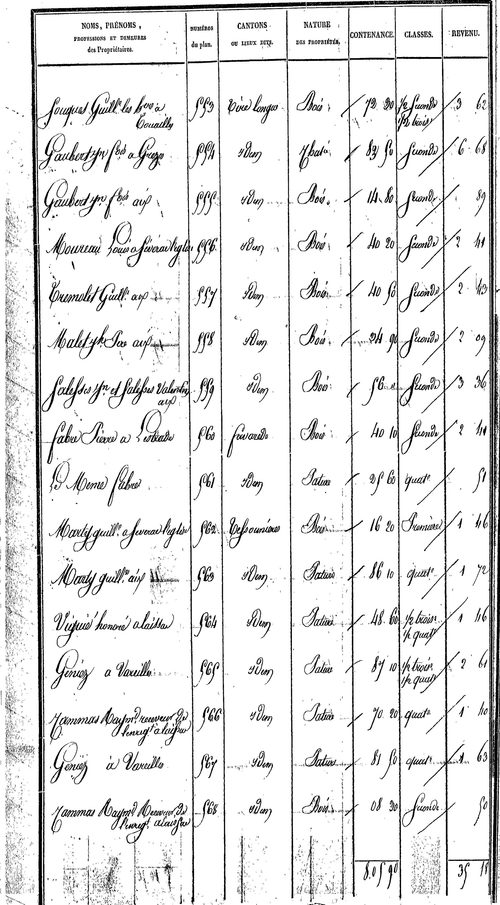 NOMS, PRÉNOMS, PROFESSIONS ET DEMEURES des Propriétaires. NUMÉROS du plan. CANTONS OU LIEUX DITS. NATURE DES PROPRIÉTÉS. CONTENANCE. CLASSES. REVENU.
553 Bois 72 30 1/2 seconde 1/2 trois 3 62
Gaubert fils a 554 Idem 83 50 Seconde 6 68
Gaubert fils aix 555 Idem Bois 14 80 Seconde 89
Moureau Louis a Séverac l'église 556 Idem Bois 40 20 Seconde 2 41
Tremolet Guille aix 557 Idem Bois 40 50 Seconde 2 43
Malet aix 558 Idem Bois 34 90 Seconde 2 09
Salesses et Salesses Valentin aix 559 Idem Bois 56 Seconde 3 36
Fabre Pierre a 560 Bois 40 10 Seconde 2 41
Le Meme Fabre 561 Idem Pature 25 60 quat 51
Marty guille a Severac l'eglise 562 Bois 16 20 Première 1 46
Marty guille aix 563 Idem Pature 86 10 quat 1 72
Viguié honoré a laissac 564 Idem Pature 48 60 1/2 trois 1/2 quat 1 46
Geniez a Vareilles 565 Idem Pature 87 10 1/2 trois 1/2 quat 2 61
Tammas Raymd receveur de l'enregt a laissac 566 Idem Pature 70 20 quat 1 40
Geniez à Vareilles 567 Idem Pature 81 50 quat 1 63
Tammas Raymd Receveur de l'enregt a laissac 568 Idem Bois 08 30 Seconde 50
8.05 90 35 18